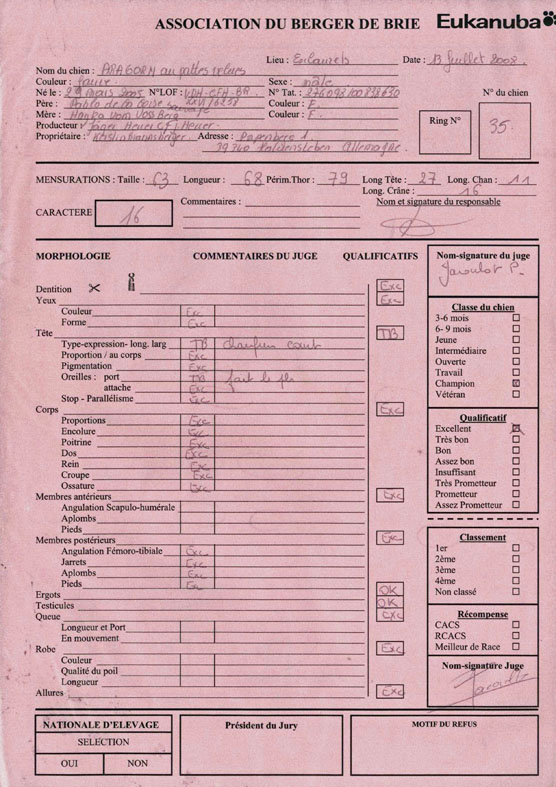 ASSOCIATION DU BERGER DE BRIE Eukanuba
Lieu : Date : 13 juillet 2008
Nom du chien : ARAGORN au pattes velues
Couleur : fauve Sexe : mâle
Né le : 29 mars 2005 N°LOF : N° Tat. : N° du chien
Père : Pablo de la Couleur : F.
Mère : vom Voss Berg Couleur : F. Ring N° 35.
Producteur :
Propriétaire : Adresse : Papenberg 1
Allemagne
MENSURATIONS : Taille : 63 Longueur : 68 Périm.Thor : 79 Long Tête : 27 Long. Chan : 11
Long. Crâne : 16
CARACTERE 16 Commentaires : Nom et signature du responsable
MORPHOLOGIE COMMENTAIRES DU JUGE QUALIFICATIFS Nom-signature du juge
Jaoulot P.
Dentition Exc
Yeux Exc
Couleur Exc
Forme Exc
Tête TB
Type-expression- long. larg TB chanfrein court
Proportion / au corps Exc
Pigmentation Exc
Oreilles : port TB
attache Exc
Stop - Parallélisme Exc
Corps Exc
Proportions Exc
Encolure Exc
Poitrine Exc
Dos Exc
Rein Exc
Croupe Exc
Ossature Exc
Membres antérieurs Exc
Angulation Scapulo-humérale
Aplombs
Pieds
Membres postérieurs Exc
Angulation Fémoro-tibiale Exc
Jarrets Exc
Aplombs Exc
Pieds Exc
Ergots OK
Testicules OK
Queue Exc
Longueur et Port
En mouvement
Robe Exc
Couleur
Qualité du poil
Longueur
Allures Exc
Classe du chien
3-6 mois
6- 9 mois
Jeune
Intermédiaire
Ouverte
Travail
Champion
Vétéran
Qualificatif
Excellent
Très bon
Bon
Assez bon
Insuffisant
Très Prometteur
Prometteur
Assez Prometteur
Classement
1er
2ème
3ème
4ème
Non classé
Récompense
CACS
RCACS
Meilleur de Race
Nom-signature Juge
NATIONALE D'ELEVAGE
SELECTION
OUI NON
Président du Jury
MOTIF DU REFUS